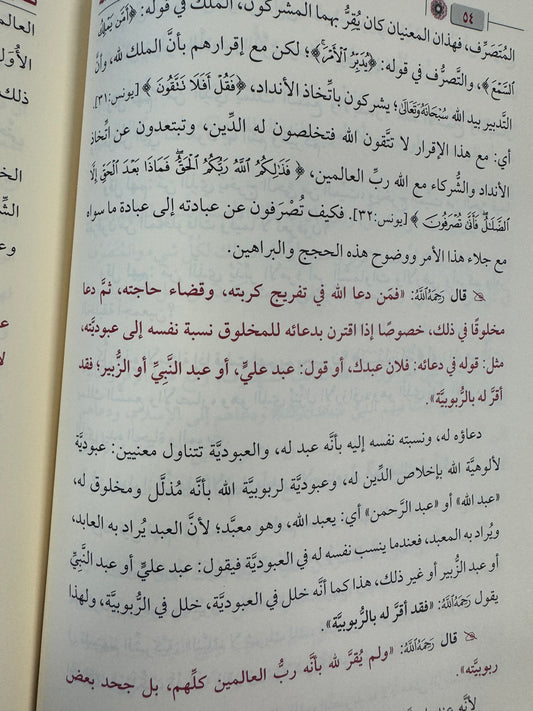 ٥٤
المُتَصَرِّف، فهذان المعنيان كان يُقِرُّ بهما المشركون، الملك في قوله: ﴿أَمَّن يَمْلِكُ
السَّمْعَ﴾، والتَّصرُّف في قوله: ﴿يُدَبِّرُ الْأَمْرَ﴾؛ لكن مع إقرارهم بأنَّ الملك لله، وأنَّ
التَّدبير بيد الله سُبْحَانَهُ وَتَعَالَى؛ يشركون باتِّخاذ الأنداد، ﴿فَقُلْ أَفَلَا تَتَّقُونَ﴾ [يونس:٣١].
أي: مع هذا الإقرار لا تتَّقون الله فتخلصون له الدِّين، وتبتعدون عن اتِّخاذ
الأنداد والشُّركاء مع الله ربِّ العالمين، ﴿فَذَٰلِكُمُ اللَّهُ رَبُّكُمُ الْحَقُّ فَمَاذَا بَعْدَ الْحَقِّ إِلَّا
الضَّلَٰلُ فَأَنَّىٰ تُصْرَفُونَ﴾ [يونس:٣٢]. فكيف تُصْرَفون عن عبادته إلى عبادة ما سواه
مع جلاء هذا الأمر ووضوح هذه الحجج والبراهين.
قال رَحِمَهُ اللَّهُ: «فمَن دعا الله في تفريج كربته، وقضاء حاجته، ثمَّ دعا
مخلوقًا في ذلك، خصوصًا إذا اقترن بدعائه للمخلوق نسبة نفسه إلى عبوديَّته،
مثل: قوله في دعائه: فلان عبدك، أو قول: عبد عليٍّ، أو عبد النَّبيِّ أو الزُّبير؛ فقد
أقرَّ له بالرُّبوبيَّة».
دعاؤه له، ونسبته نفسه إليه بأنَّه عبد له، والعبوديَّة تتناول معنيين: عبوديَّة
لألوهيَّة الله بإخلاص الدِّين له، وعبوديَّة لربوبيَّة الله بأنَّه مُذلَّل ومخلوق له،
«عبد الله» أو «عبد الرَّحمن» أي: يعبد الله، وهو معبَّد؛ لأنَّ العبد يُراد به العابد،
ويُراد به المعبد، فعندما ينسب نفسه له في العبوديَّة فيقول: عبد عليٍّ أو عبد النَّبيِّ
أو عبد الزُّبير أو غير ذلك، هذا كما أنَّه خلل في العبوديَّة، خلل في الرُّبوبية، ولهذا
يقول رَحِمَهُ اللَّهُ: «فقد أقرَّ له بالرُّبوبيَّة».
قال رَحِمَهُ اللَّهُ: «ولم يُقرَّ لله بأنَّه ربُّ العالمين كلِّهم، بل جحد بعض
ربوبيَّته».